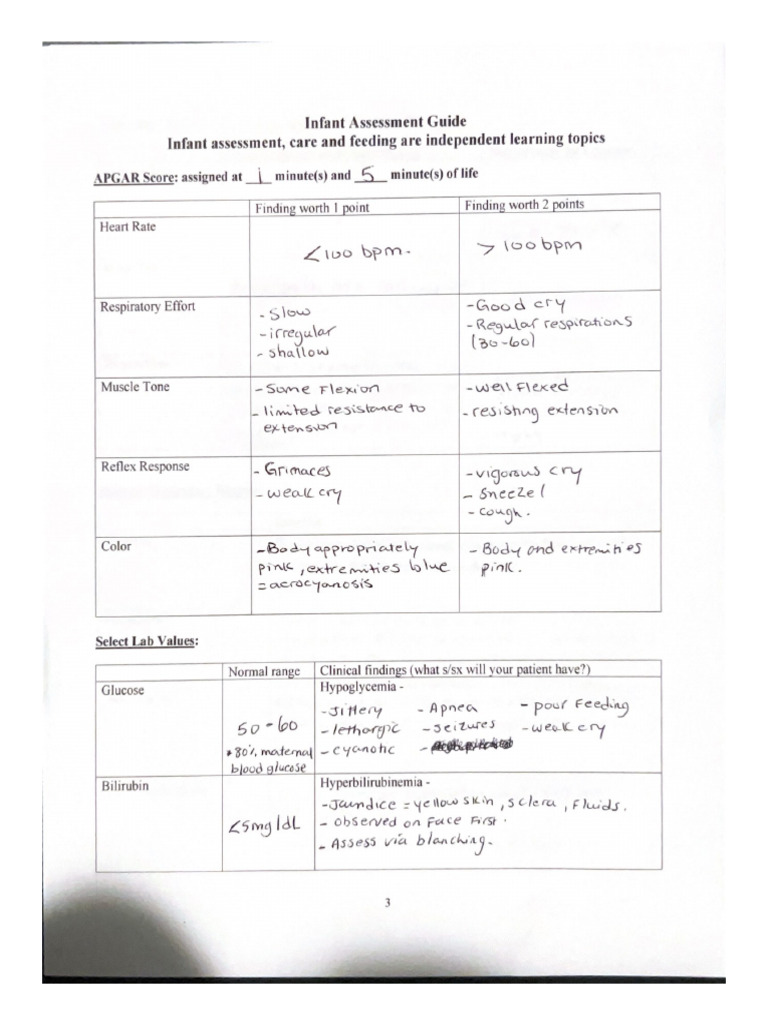 Infant Assessment Guide
Infant assessment, care and feeding are independent learning topics
APGAR Score: assigned at 1 minute(s) and 5 minute(s) of life
Finding worth 1 point
Finding worth 2 points
Heart Rate
<100 bpm.
>100 bpm
Respiratory Effort
- Slow
- irregular
- shallow
- Good cry
- Regular respirations
(30-60)
Muscle Tone
- Some Flexion
- limited resistance to
extension
- well flexed
- resisting extension
Reflex Response
- Grimaces
- weak cry
- vigorous cry
- Sneeze/
- cough.
Color
- Body appropriately
pink, extremities blue
= acrocyanosis
- Body and extremities
pink.
Select Lab Values:
Normal range
Clinical findings (what s/sx will your patient have?)
Glucose
50-60
*80% maternal
blood glucose
Hypoglycemia -
- Jittery - Apnea - poor Feeding
- lethargic - seizures - weak cry
- cyanotic -
Bilirubin
<5mg/dL
Hyperbilirubinemia -
- Jaundice = yellow skin, sclera, fluids.
- observed on Face First.
- Assess via blanching.
3